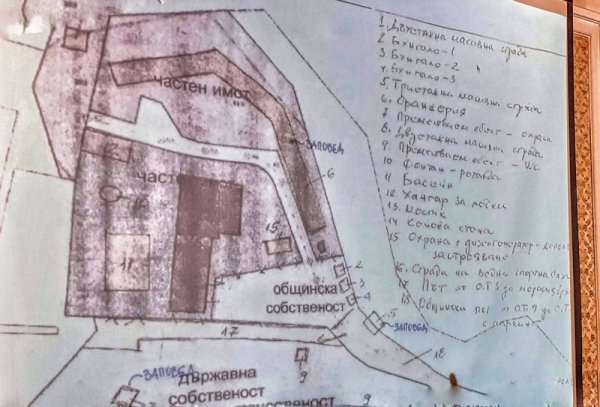 1. Двустажна масивна сграда
2 Бунгало - 1
3 Бунгало - 2
4. Бунгало - 3
5. Триетажна масивна сграда
6. Оранжерия
7 Преместваем обект - охрана
8. Двустажна масивна сграда
9. Преместваем обект - WC
10 Фонтан - ротонда
11 Басейн
12 Хангар за лодки
13. Мостик
14
15 Охрана + дизелгенератор -
застрояване
16. Сгради на
17 Път от о.т. 3 до
18. Общински път от о.т. 9 до о.т.
частен имот
ЗАПОВЕД
6
част
10
15
11
2
3
4
общинска
собственост
5
ЗАПОВЕД
17
18
9
ЗАПОВЕД
държавна
собственост
9